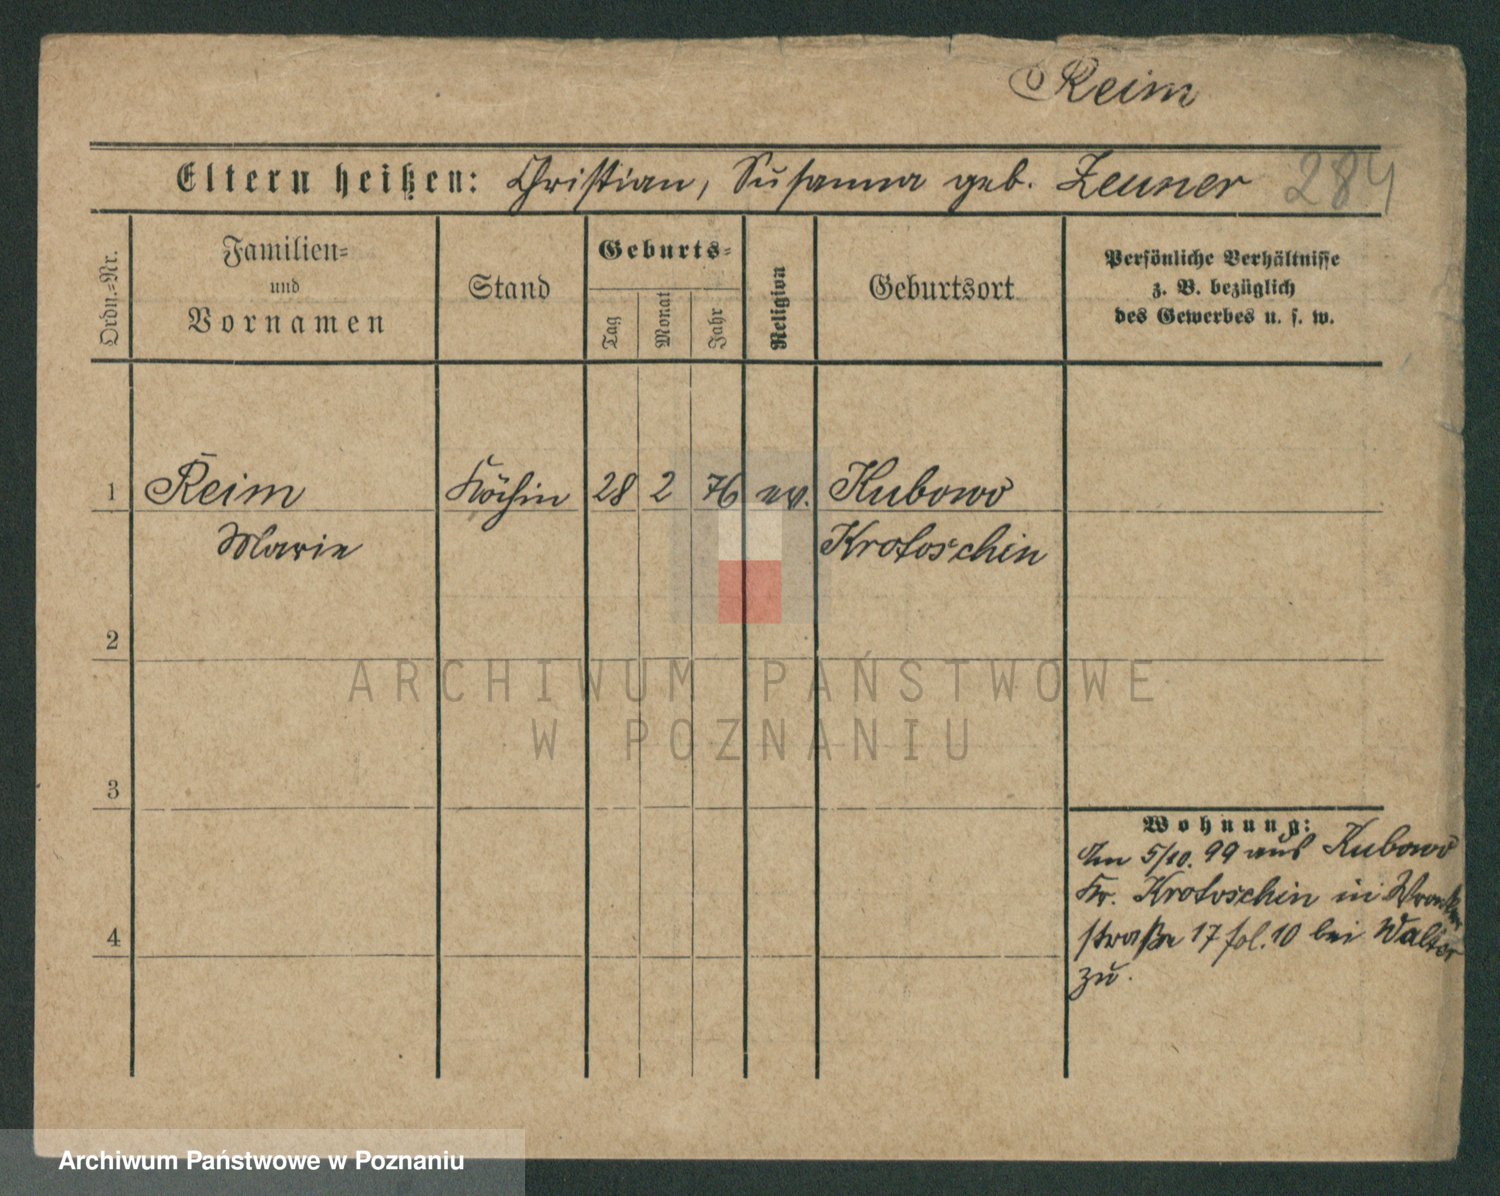 Reim
Eltern heißen: Christian, Susanna geb. Zeuner 284
Ordn.-Nr.
Familien-
und
Vornamen
Stand
Geburts-
Tag
Monat
Jahr
Religion
Geburtsort
Persönliche Verhältnisse
z. B. bezüglich
des Gewerbes u. s. w.
1 Reim Köchin 28 2 76 ev. Kubowo
Marie Krotoschin
2
ARCHIWUM PAŃSTWOWE
W POZNANIU
3
Wohnung:
Am 5/10. 99 aus Kubowo
Kr. Krotoschin in Wronker
straße 17 fol. 10 bei Walter
zu.
4
Archiwum Państwowe w Poznaniu